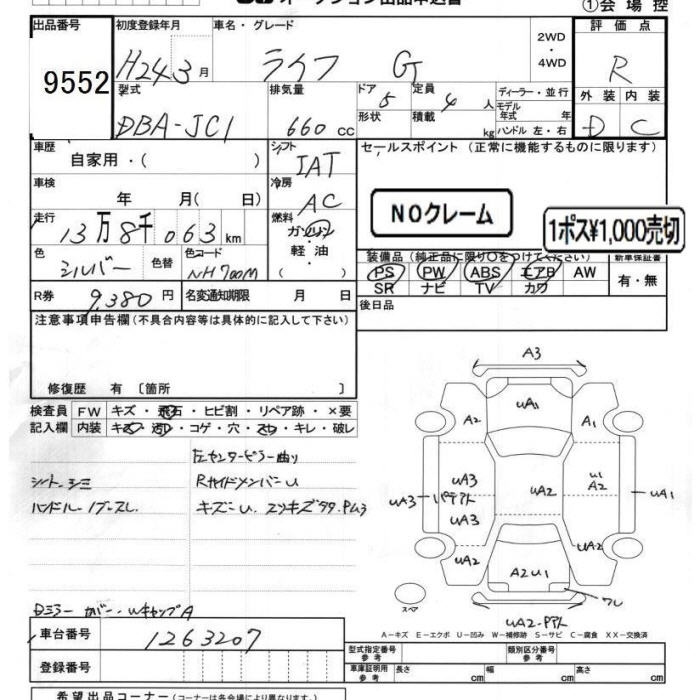 オークション出品申込書
①会場控
出品番号
9552
初度登録年月
H24 3月
車名・グレード
ライフ G
2WD
・
4WD
評価点
R
型式
DBA-JC1
排気量
660 cc
ドア
5
定員
4 人
形状
積載
kg
ディーラー・並行
モデル年式 年
ハンドル 左・右
外装 内装
D C
車歴
自家用・( )
シフト
IAT
セールスポイント (正常に機能するものに限ります)
車検
年 月( 日)
冷房
AC
NOクレーム
1ポス¥1,000売切
走行
13万8千063km
燃料
ガソリン
・
軽油
( )
色
シルバー
色替
色コード
NH700M
装備品 (純正品に限り○をつけてください)
PS PW ABS エアB AW
SR ナビ TV カワ
新車保証書
有・無
R券
9,380円
名変通知期限 月 日
後日品
注意事項申告欄(不具合内容等は具体的に記入して下さい)
修復歴 有 〔箇所 〕
検査員記入欄
FW キズ・飛石・ヒビ割・リペア跡・×要
内装 キズ・汚レ・コゲ・穴・スレ・キレ・破レ
左センターピラー曲り
シートシミ
RサイドメンバーU
ハンドルノブスレ
A3
UA1
A2
A1
UA3
UA3
パテアト
UA3
UA2
U1
A2
UA1
UA2
UA2
A2U1
ワレ
スペア
UA2-Pアト
A-キズ E-エクボ U-凹み W-補修跡 S-サビ C-腐食 XX-交換済
車台番号
1263207
登録番号
型式指定番号
参考
類別区分番号
参考
車庫証明用
参考
長さ cm 幅 cm 高さ cm
希望出品コーナー(コーナーは各会場により異なります)